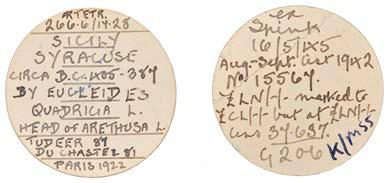 ARTETR.
266.6/17.28
SICILY
SYRACUSE
CIRCA B.C. 405-387
BY EUCLEIDES
QUADRIGA L.
HEAD OF ARETHUSA L.
TUDEER 87
DU CHASTEL 81
PARIS 1922
ex
Spink
16/5/45
Aug-Sept. List 1942
No 15567.
£LN/-/- marked to
£CL/-/- but at £LN/-/-
37.637.
G 206
K/MSS